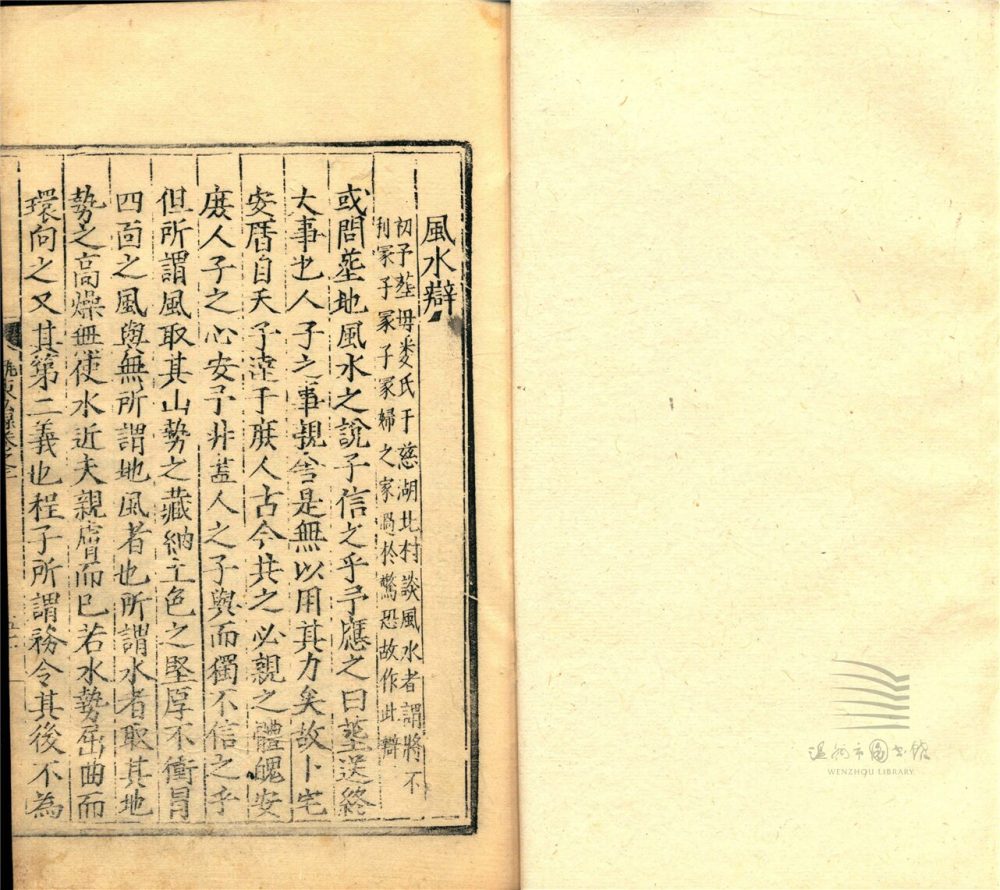 風水辯
初予塟母娄氏于慈湖北村談風水者謂將不
利冢子冢子冢婦之家過於驚恐故作此辯
或問塟地風水之說子信之乎予應之曰塟送終
大事也人子之事親舍是無以用其力矣故卜宅
安厝自天子達于庶人古今共之必親之體魄安
庶人子之心安予非葢人之子與而獨不信之乎
但所謂風取其山勢之藏納土色之堅厚不衝冒
四面之風與無所謂地風者也所謂水者取其地
勢之高燥無使水近夫親膚而已若水勢屈曲而
環向之又其第二義也程子所謂務令其後不為
卷之
温州市圖書館
WENZHOU LIBRARY